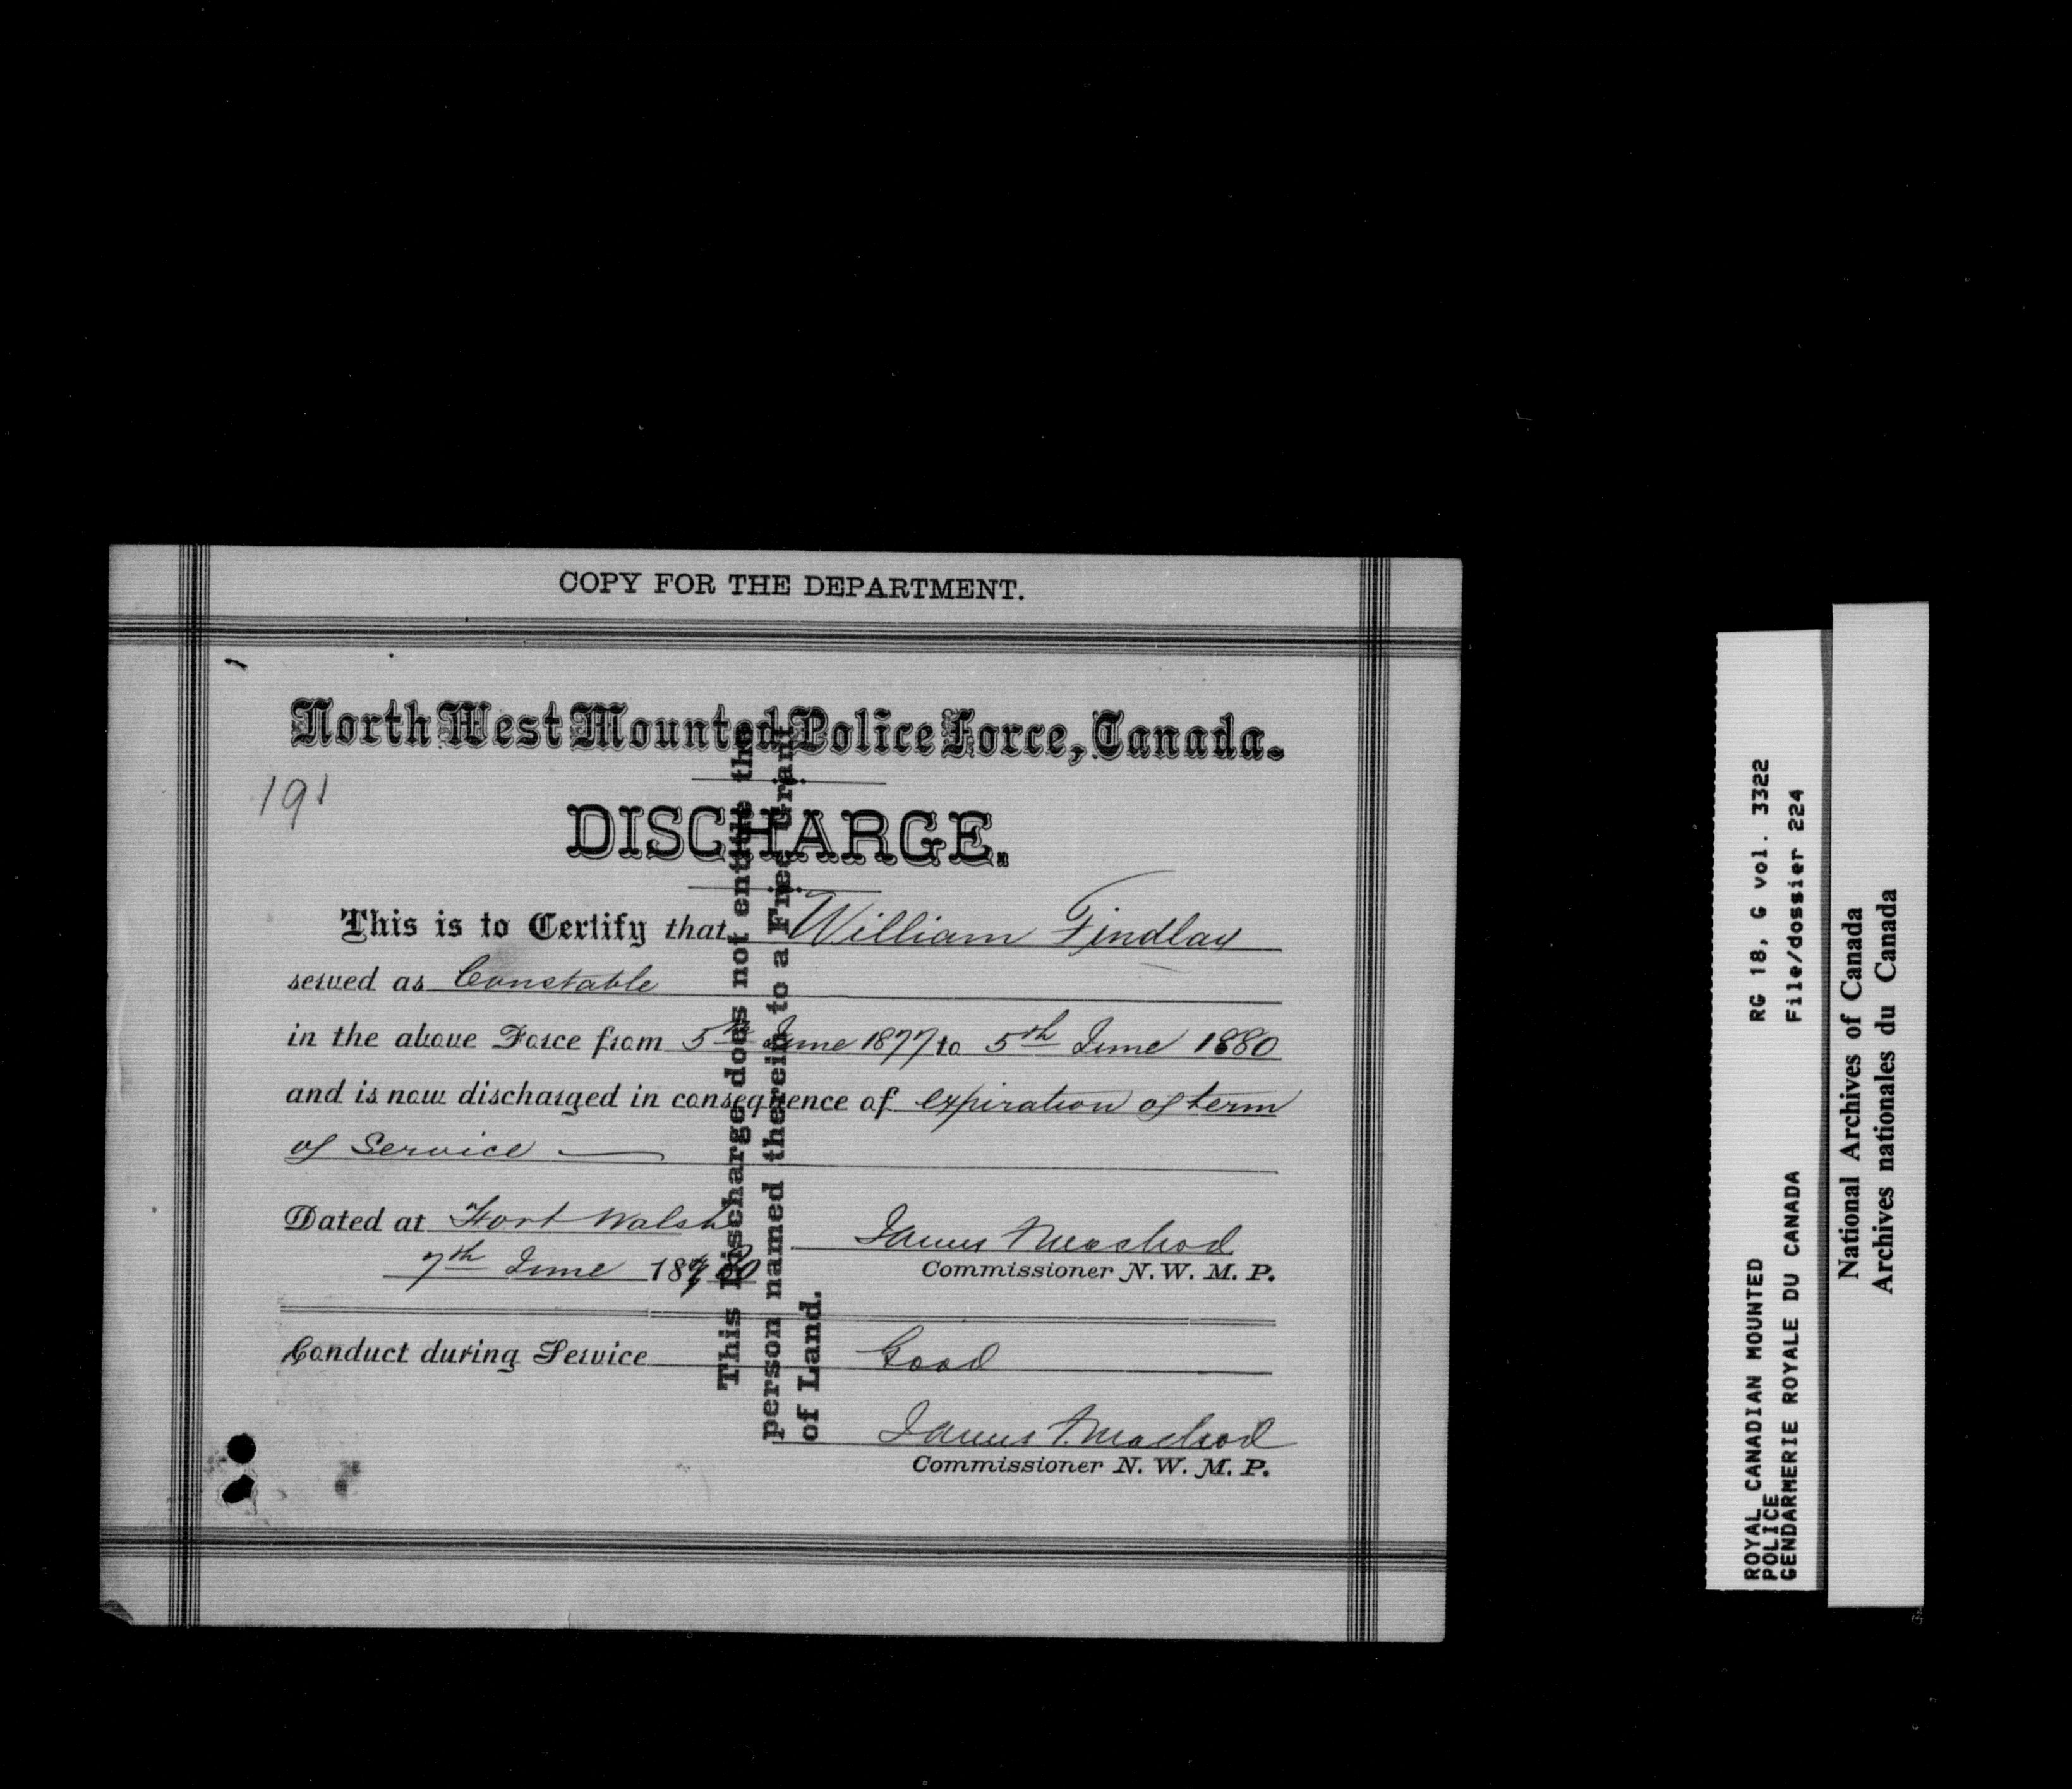 COPY FOR THE DEPARTMENT.
North West Mounted Police Force, Canada.
191
DISCHARGE.
This is to Certify that William Findlay
served as Constable
in the above Force from 5th June 1877 to 5th June 1880
and is now discharged in consequence of expiration of term
of Service
Dated at Fort Walsh
7th June 1880
James F. Macleod
Commissioner N. W. M. P.
Conduct during Service Good
James F. Macleod
Commissioner N. W. M. P.
This Discharge does not entitle the
person named therein to a Free Grant
of Land.
ROYAL CANADIAN MOUNTED
POLICE
GENDARMERIE ROYALE DU CANADA
RG 18, G vol. 3322
File/dossier 224
National Archives of Canada
Archives nationales du Canada